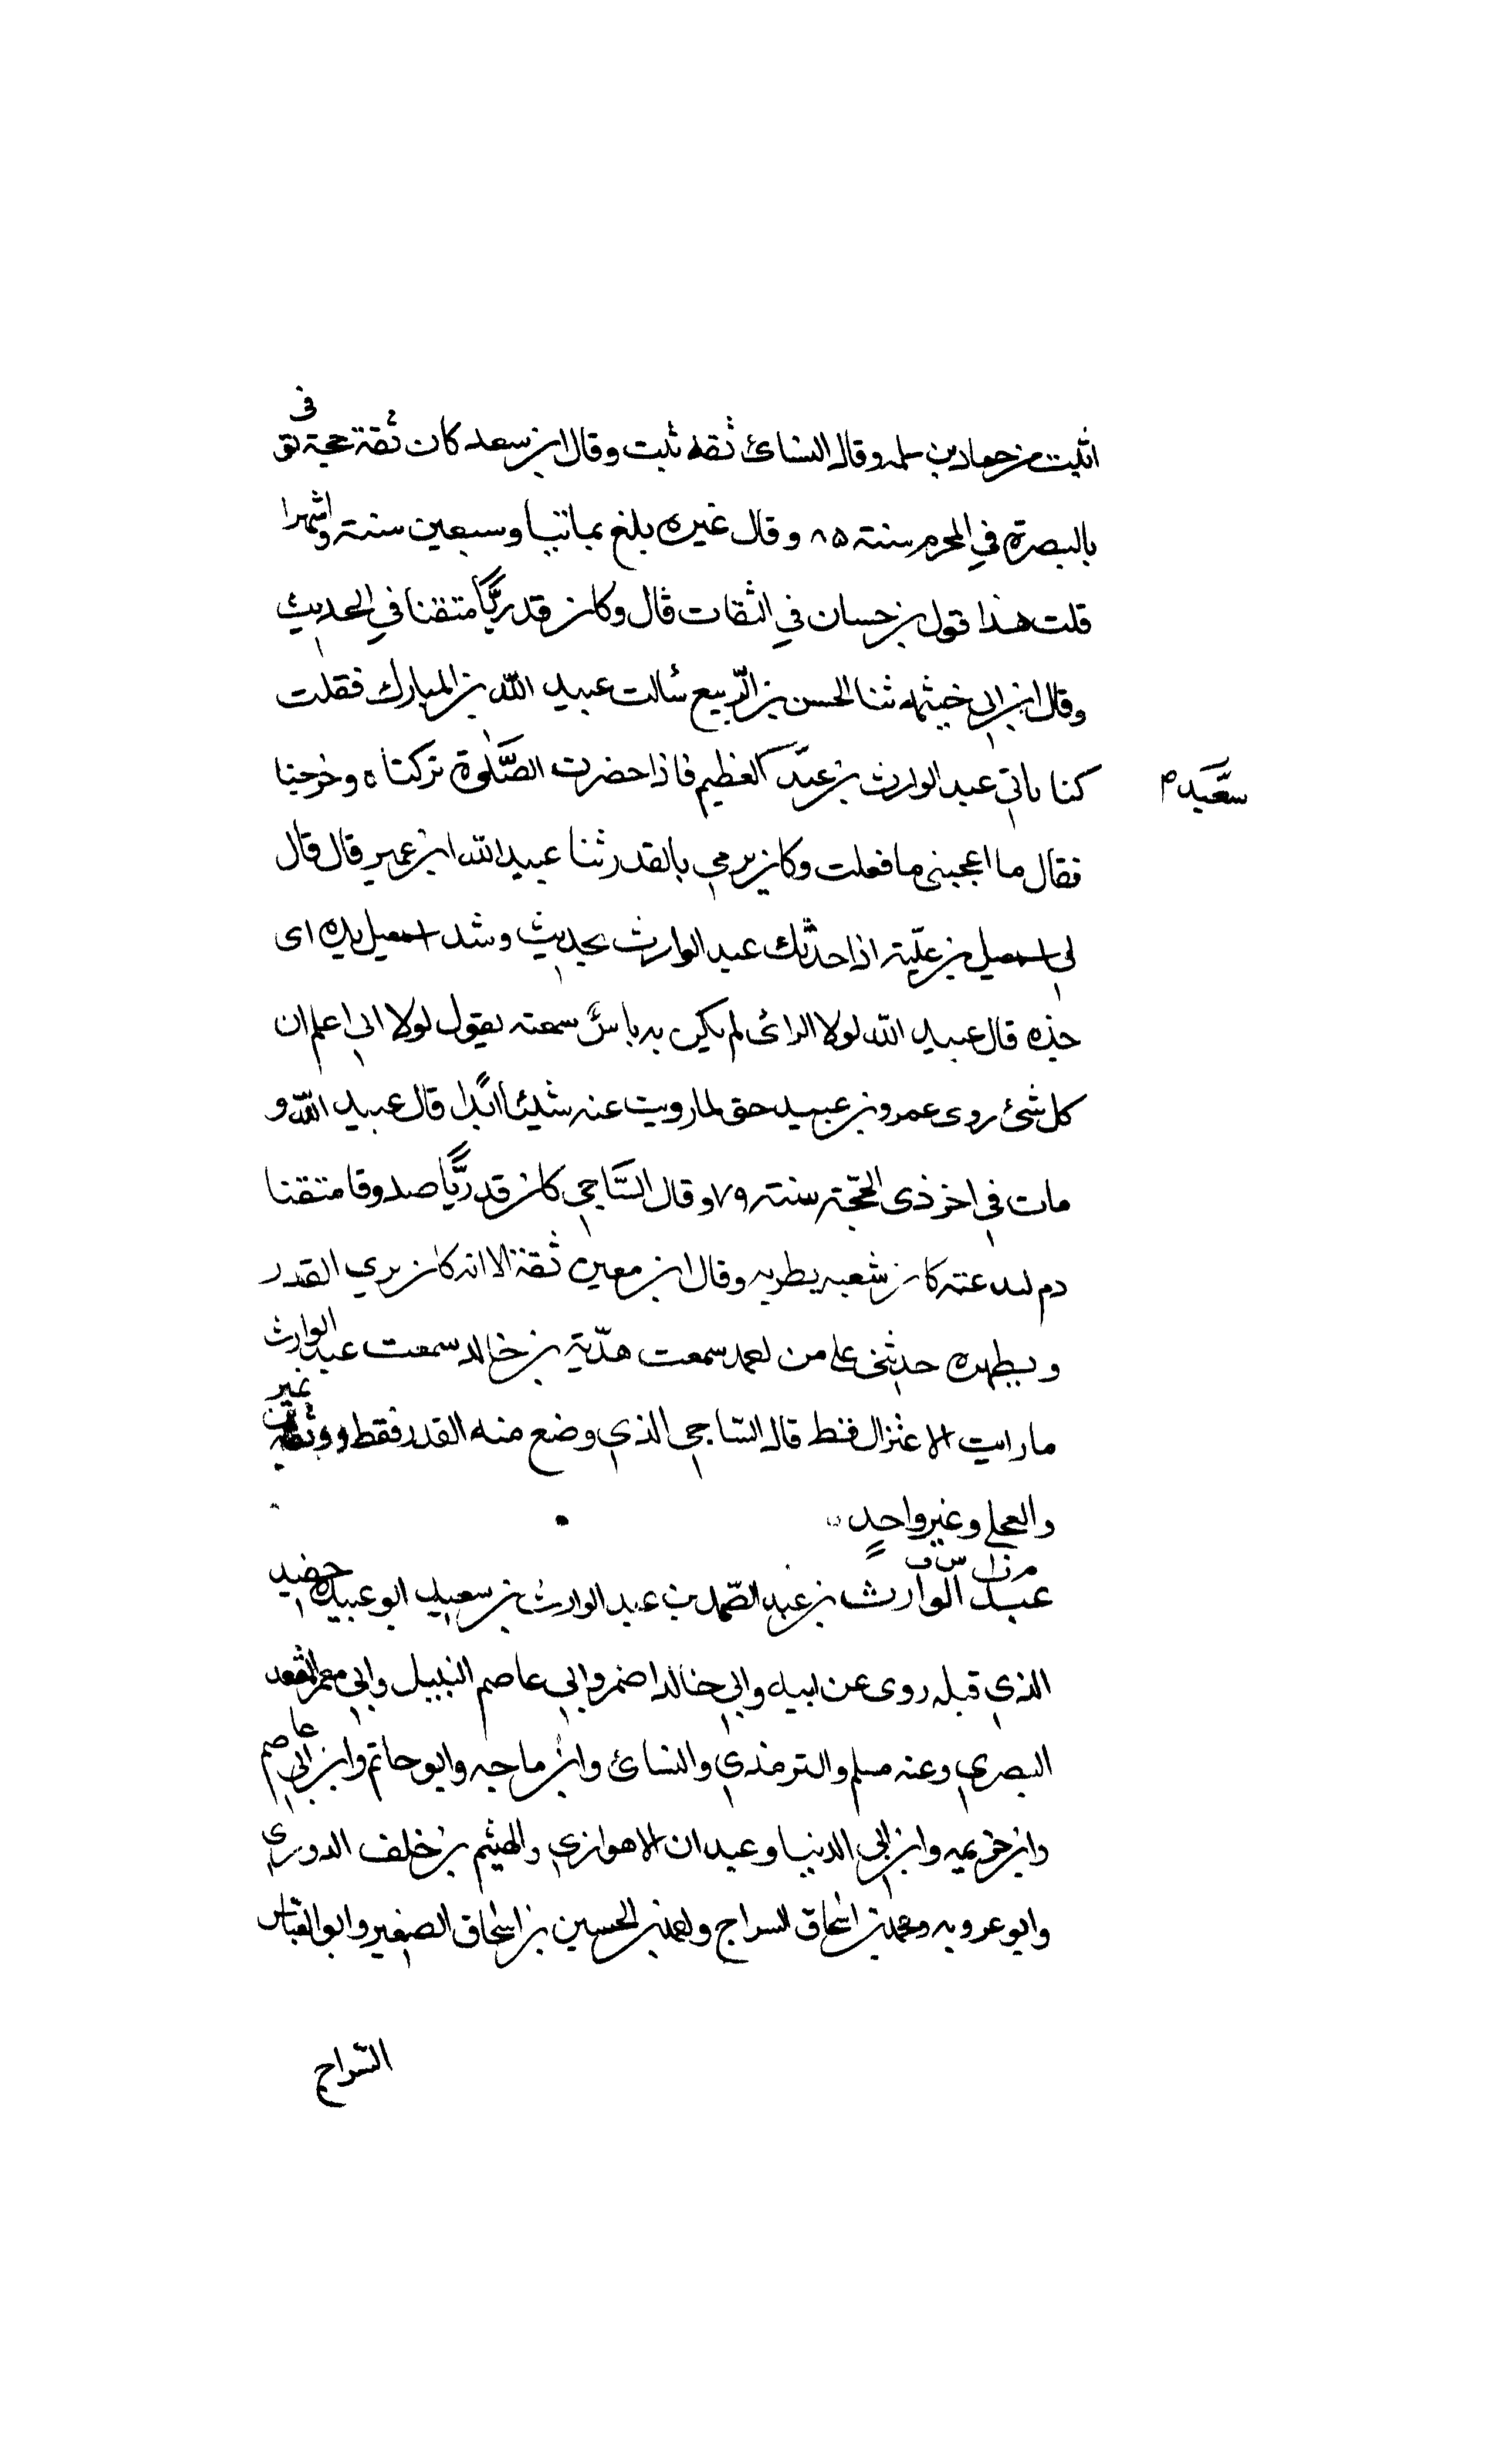 اثبت من حماد بن سلمه وقال النسائ ثقة ثبت وقال ابن سعد كان ثقة حجة توفى
بالبصرة في المحرم سنة ٨٥ وقال غيره بلغ ثمانيا وسبعين سنة واشهرا
قلت هذا قول بن حسان في الثقات قال وكان قدريًّا متقنا في الحديث
وقال ابن ابي خيثمه ثنا الحسن بن الرّبيع سالت عبيد اللّه بن المبارك فقلت
كنا ناتي عبد الوارث بن عبد العظيم فاذا حضرت الصَّلوة تركناه وخرجنا
سعَيد م
فقال ما اعجبنى ما فعلت وكان يرمي بالقدر ثنا عبيد الله ابن عمير قال قال
لي اسمعيل بن عليّة اذا حدثك عبد الوارث بحديث وشد اسمعيل يده اى
خذه قال عبيد اللّه لولا الرائ لم يكن به باسٌ سمعته يقول لولا اني اعلم ان
كل شئ روى عمرو بن عبيد حق لما رويت عنه شيئا ابدًا قال عبيد اللّه و
مات في اخر ذى الحجّة سنة ٧٩ وقال السَّاجي كان قدريًّا صدوقا متقنا
ذم لبدعته كان شعبه يطريه وقال ابن معين ثقة الا انه كان يري القدر
ويظهره حدثنى على من سمعت هدبة بن خالد سمعت عبد الوارث
ما رايت الاعتزال قط قال السّاجي الذي وضع منه القدر فقط ووثقه ابن نمير
والعجلي وغير واحدٍ
م ت س ق
عبد الوارث بن عبد الصّمد بن عبد الوارث بن سعيد ابو عبيده حفيد
الذي قبله روى عن ابيه وابي خالد الاحمر وابي عاصم النبيل وابي معمر المقعد
البصري وعنه مسلم والترمذي والنسائ وابن ماجه وابو حاتم وابن ابي عاصم
وابن خزيمه وابن ابي الدنيا وعبدان الاهوازي والهيثم بن خلف الدوري
وابو عروبه ومحمد بن اسحاق السراج والحسين بن اسحاق الصغير وابو العبّاس
السّراج